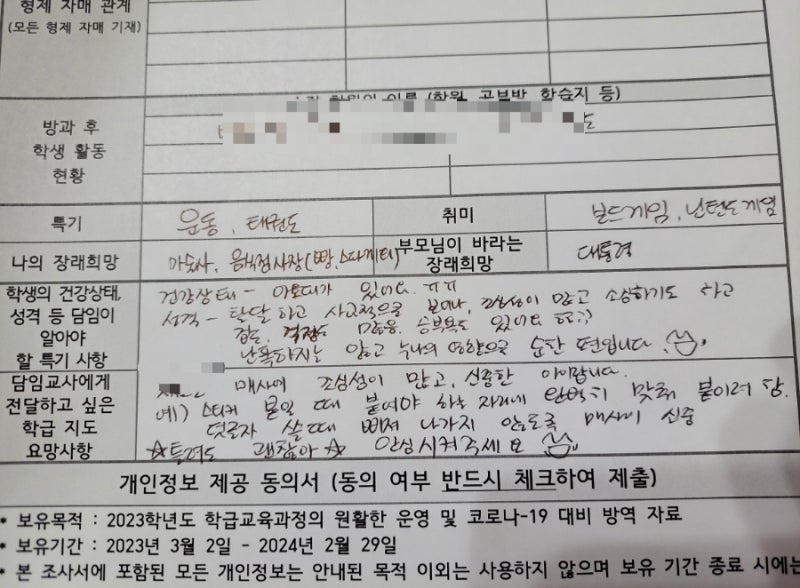 형제 자매 관계
(모든 형제 자매 기재)
학원의 이름 (학원, 공부방, 학습지 등)
방과 후
학생 활동
현황
특기 운동, 태권도 취미 보드게임, 닌텐도게임
나의 장래희망 마술사, 음식점사장(빵, 스파게티) 부모님이 바라는 장래희망 대통령
학생의 건강상태,
성격 등 담임이
알아야
할 특기 사항
건강상태 - 아토피가 있어요. ㅠㅠ
성격 - 활달하고 사교적으로 보이나, 조심성이 많고 소심하기도 하고
겁도, 걱정도 많음. 승부욕도 있어요
난폭하지는 않고 누나의 영향으로 순한 편입니다.
담임교사에게
전달하고 싶은
학급 지도
요망사항
매사에 조심성이 많고, 신중한 아이랍니다.
예) 스티커 붙일 때 붙여야 하는 자리에 완벽히 맞춰 붙이려 함.
덧글자 쓸 때 삐져 나가지 않도록 매사에 신중
☆틀려도 괜찮아☆ 안심시켜주세요
개인정보 제공 동의서 (동의 여부 반드시 체크하여 제출)
* 보유목적 : 2023학년도 학급교육과정의 원활한 운영 및 코로나-19 대비 방역 자료
* 보유기간 : 2023년 3월 2일 - 2024년 2월 29일
* 본 조사서에 포함된 모든 개인정보는 안내된 목적 이외는 사용하지 않으며 보유 기간 종료 시에는